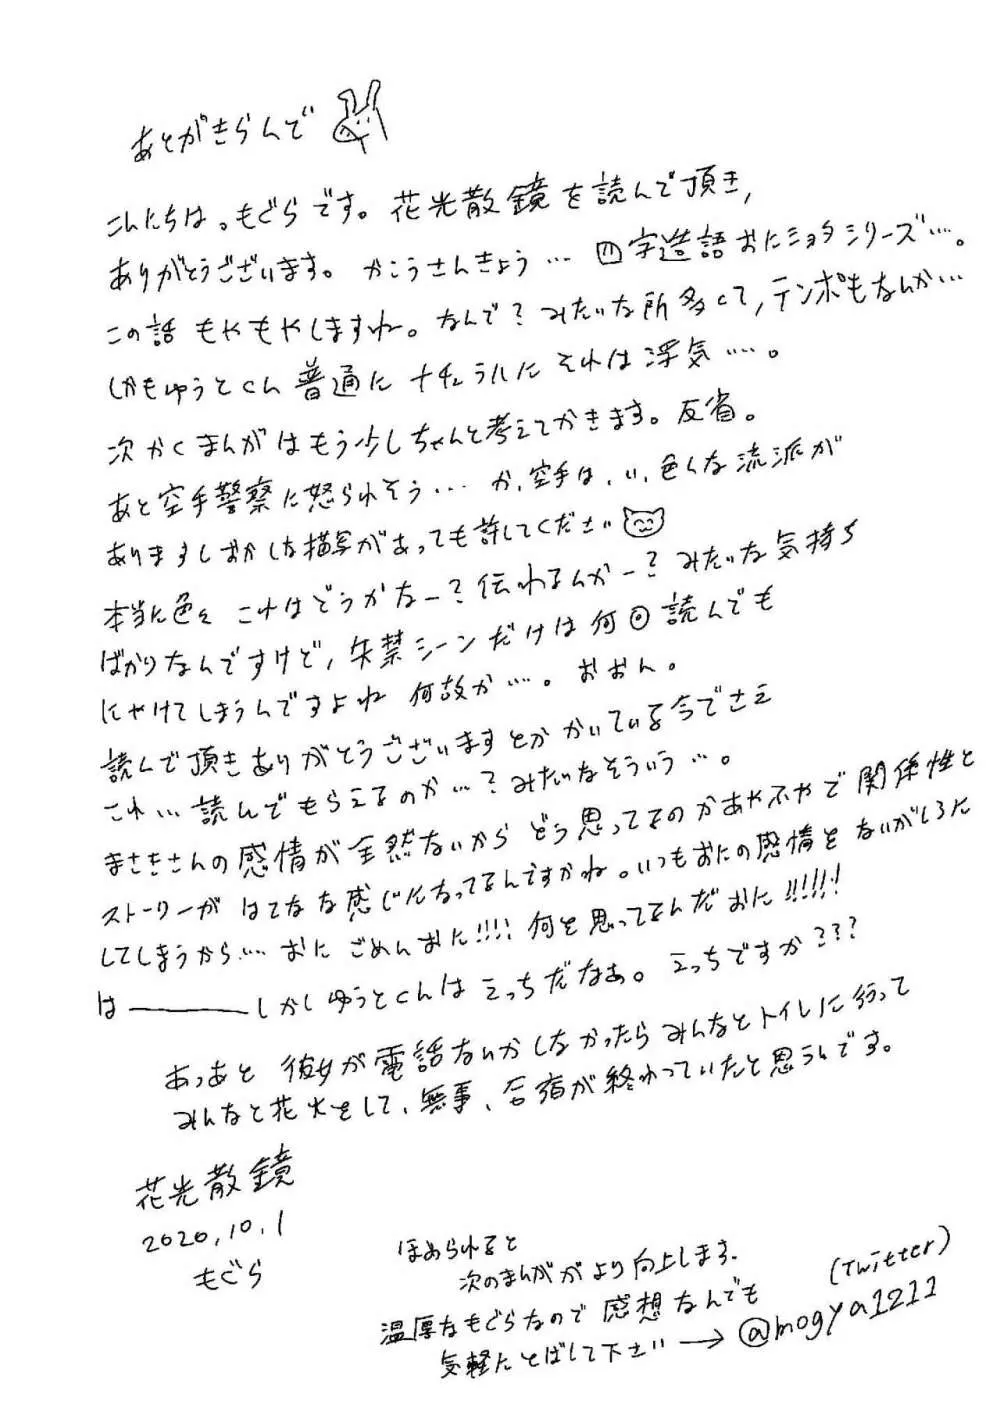 あとがきらんど
こんにちは。もぐらです。花光散鏡を読んで頂き,
ありがとうございます。かこうさんきょう… 四字造語おにショタシリーズ…。
この話 もやもやしますね。なんで?みたいな所多くて,テンポもなんか…
しかもゆうとくん普通にナチュラルにそれは浮気…。
次かくまんがはもう少しちゃんと考えてかきます。反省。
あと空手警察に怒られそう… が,空手は,い,色んな流派が
ありますしおかしな描写があっても許してください
本当に色々 これはどうかなー?伝わるんかー?みたいな気持ち
ばかりなんですけど,失禁シーンだけは何回読んでも
にやけてしまうんですよね 何故か…。おおん。
読んで頂きありがとうございますとかかいている今でさえ
これ…読んでもらえるのか…?みたいなそういう…。
まさきさんの感情が全然ないから どう思ってるのかあやふやで関係性と
ストーリーが はてなな感じになってるんですかね。いつもおにの感情を ないがしろに
してしまうから…おに ごめんおに!!!! 何を思ってるんだおに!!!!!!
は――― しかしゆうとくんはえっちだなぁ。えっちですか???
あっあと 彼女が電話ないかしなかったらみんなとトイレに行って
みんなと花火をして、無事、合宿が終わっていたと思うんです。
花光散鏡
2020,10,1
もぐら
ほめられると
次のまんががより向上します.
温厚なもぐらなので 感想なんでも
気軽にとばして下さい → @mogya1211
(Twitter)